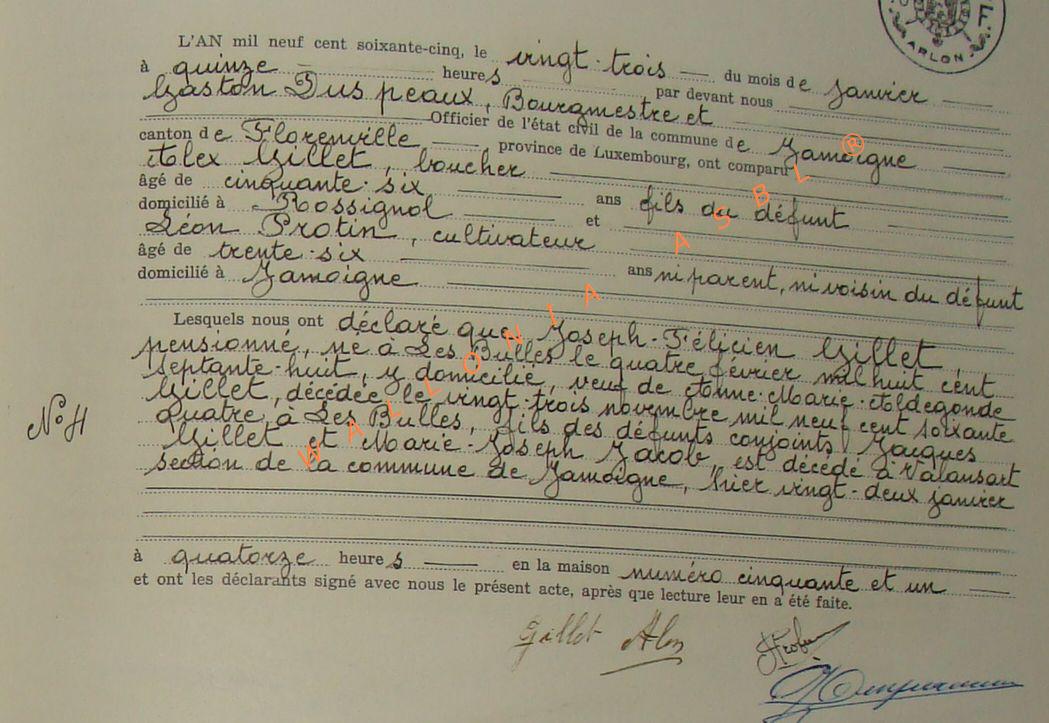 F
ARLON
L'AN mil neuf cent soixante-cinq, le vingt-trois du mois de janvier
à quinze heures par devant nous
Gaston Duspeaux, Bourgmestre et
Officier de l'état civil de la commune de Jamoigne
canton de Florenville province de Luxembourg, ont comparu
Alex Gillet, boucher
âgé de cinquante-six ans fils du défunt
domicilié à Rossignol et
Léon Protin, cultivateur
âgé de trente-six ans ni parent, ni voisin du défunt
domicilié à Jamoigne
Lesquels nous ont déclaré que Joseph-Félicien Gillet,
pensionné, né à Les Bulles le quatre février mil huit cent
septante-huit, y domicilié, veuf de Anne-Marie-Aldegonde
Gillet, décédée le vingt-trois novembre mil neuf cent soixante
quatre à Les Bulles, fils des défunts conjoints Jacques
N° 4
Gillet et Marie-Joseph Jacob, est décédé à Valansart
section de la commune de Jamoigne, hier vingt-deux janvier
à quatorze heures en la maison numéro cinquante et un
et ont les déclarants signé avec nous le présent acte, après que lecture leur en a été faite.
Gillet Alex
WALLONIA ASBL ®